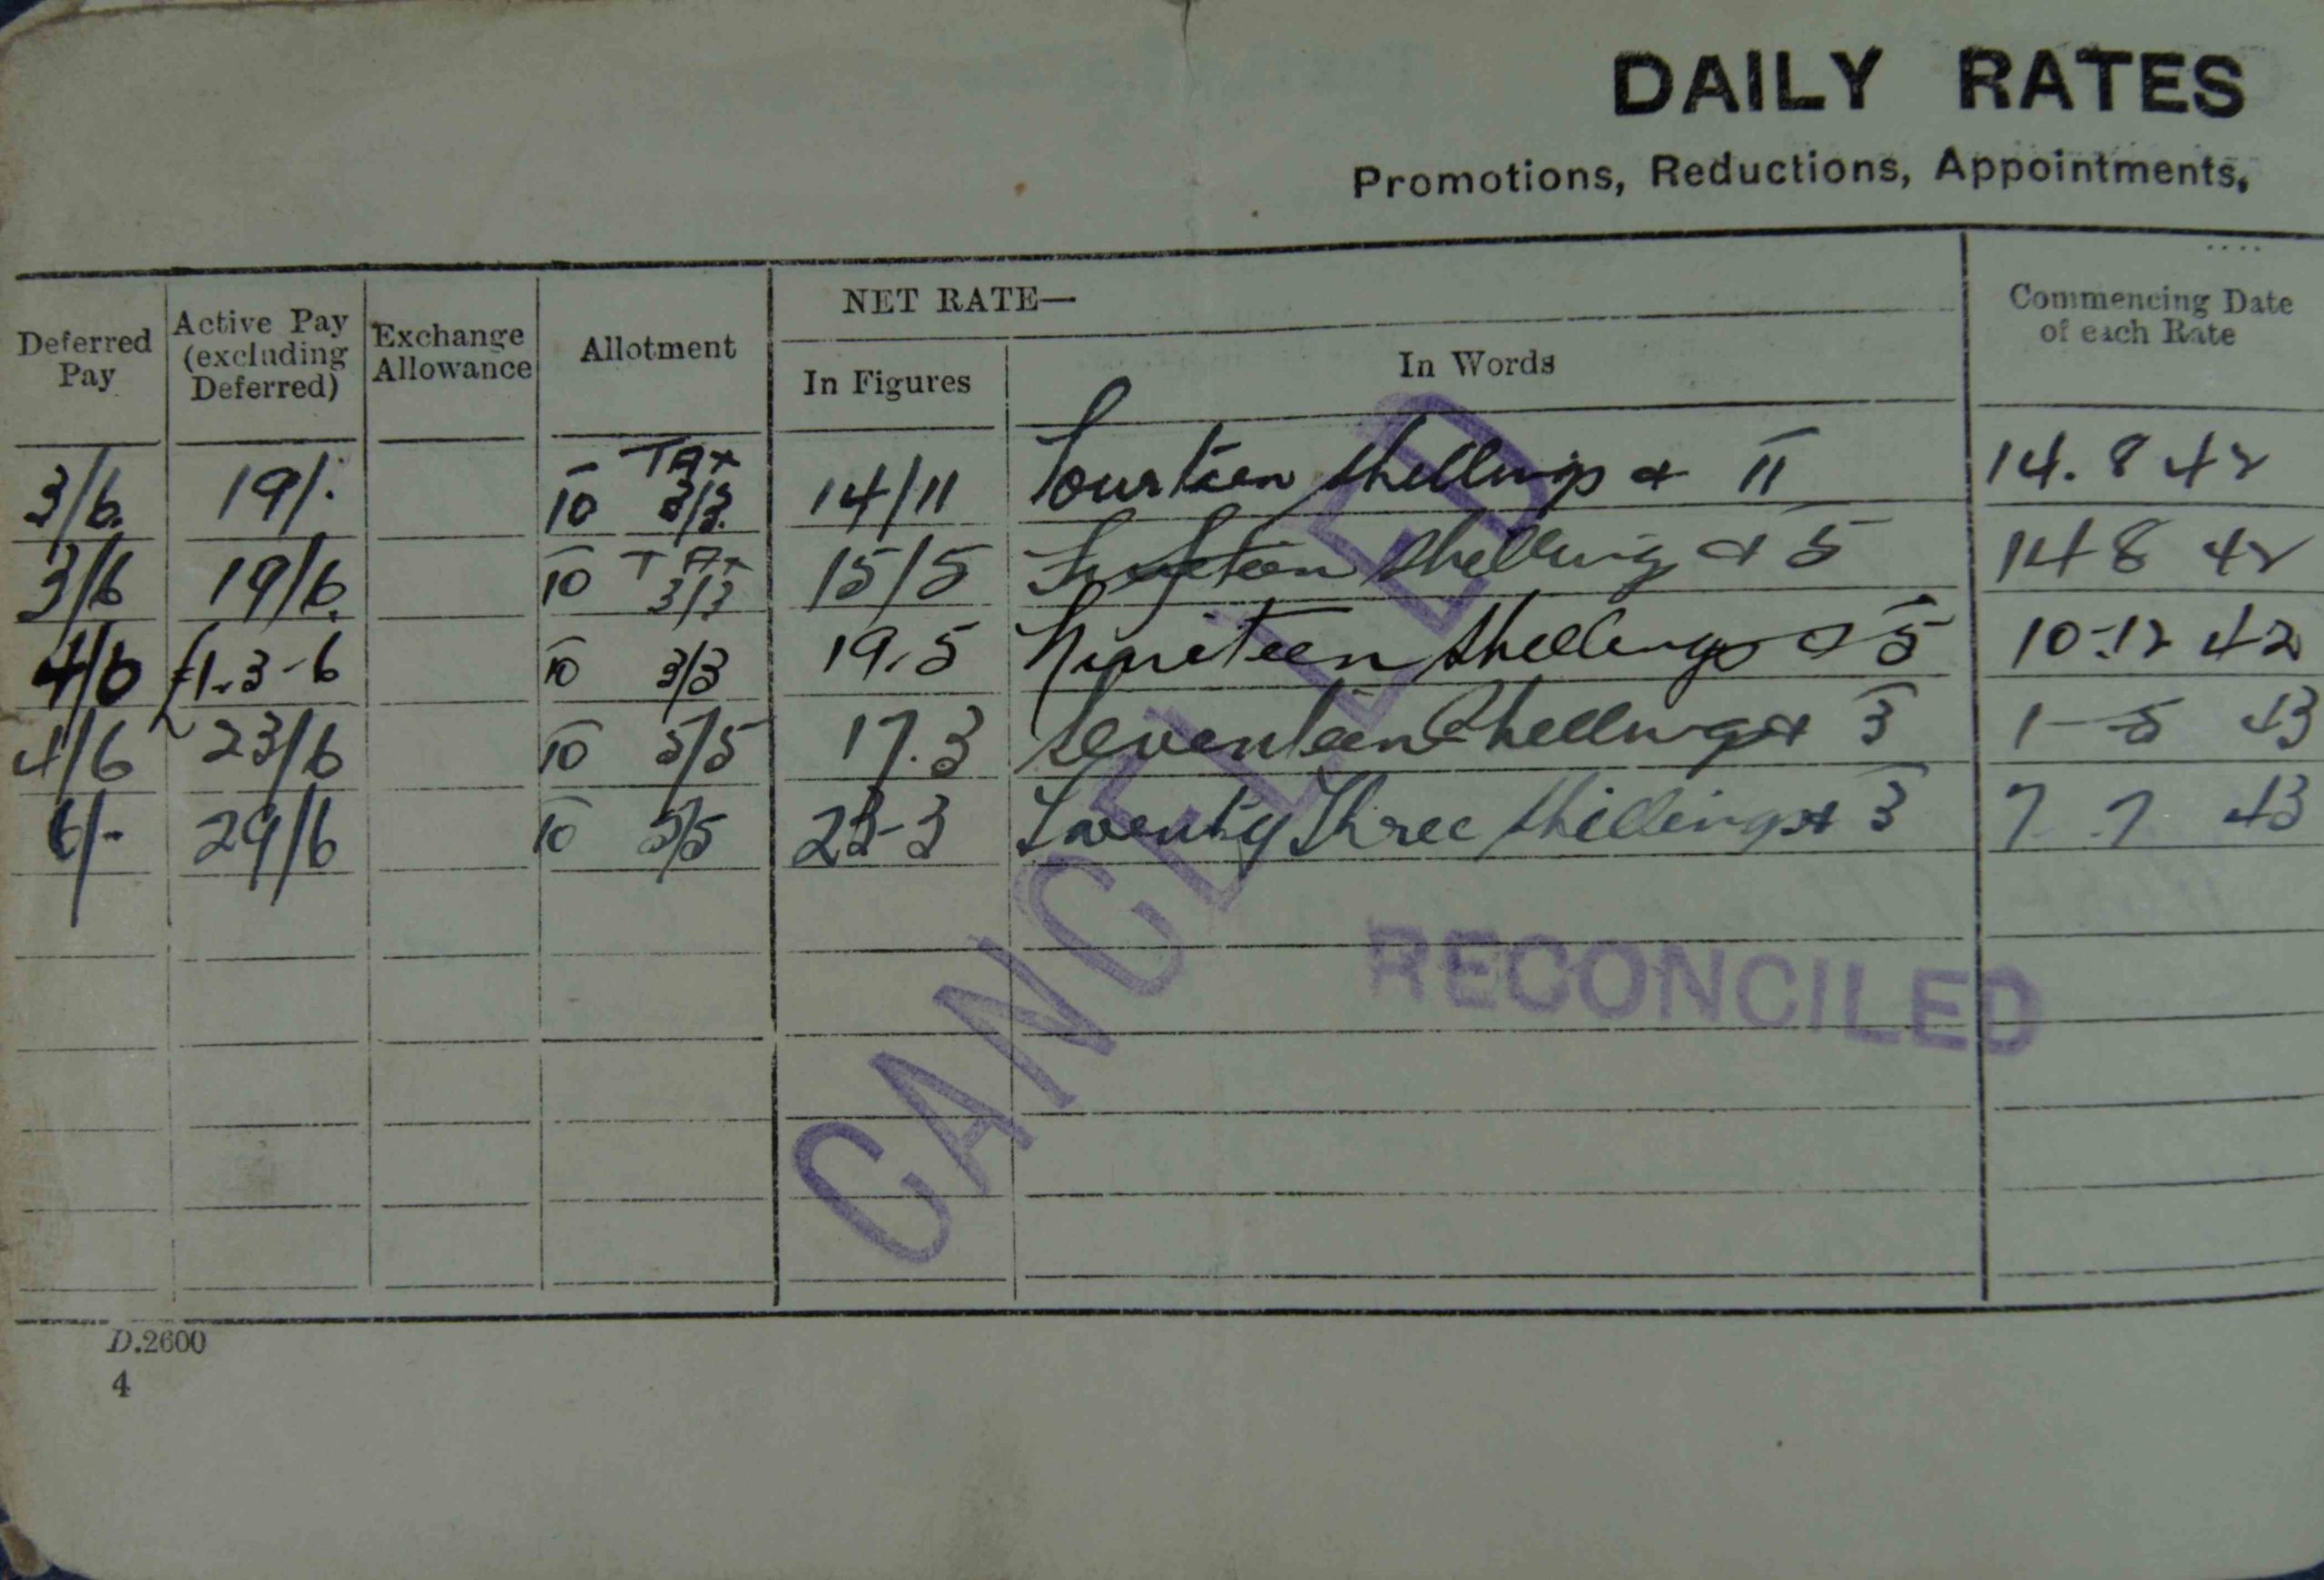 DAILY RATES
Promotions, Reductions, Appointments,
Deferred Pay
Active Pay (excluding Deferred)
Exchange Allowance
Allotment
NET RATE—
In Figures
In Words
Commencing Date of each Rate
3/6. 19/- 10 TAX 3/3. 14/11 Fourteen shillings & 11 14. 8 42
3/6 19/6. 10 TAX 3/3 15/5 Fifteen Shillings & 5 14 8 42
4/6 £1.3-6 10 3/3 19.5 Nineteen Shillings & 5 10-12 42
4/6 23/6 10 5/5 17.3 Seventeen Shillings & 3 1-5 43
6/- 29/6 10 5/5 23-3 Twenty Three Shillings & 3 7 7 43
CANCELLED
RECONCILED
D.2600
4